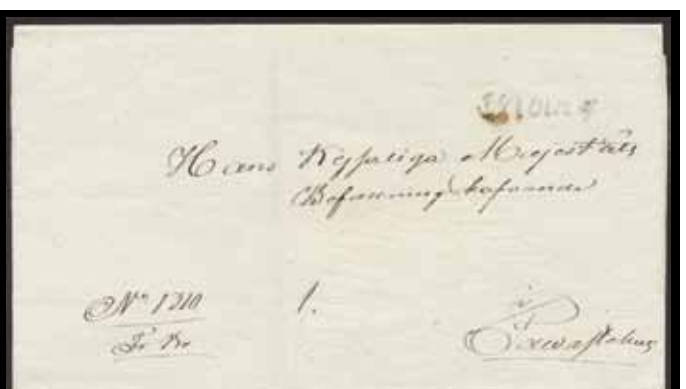 Hans Kejserliga Majestäts
Befallningshafvande
N° 1310
1.
i
Tawastehus